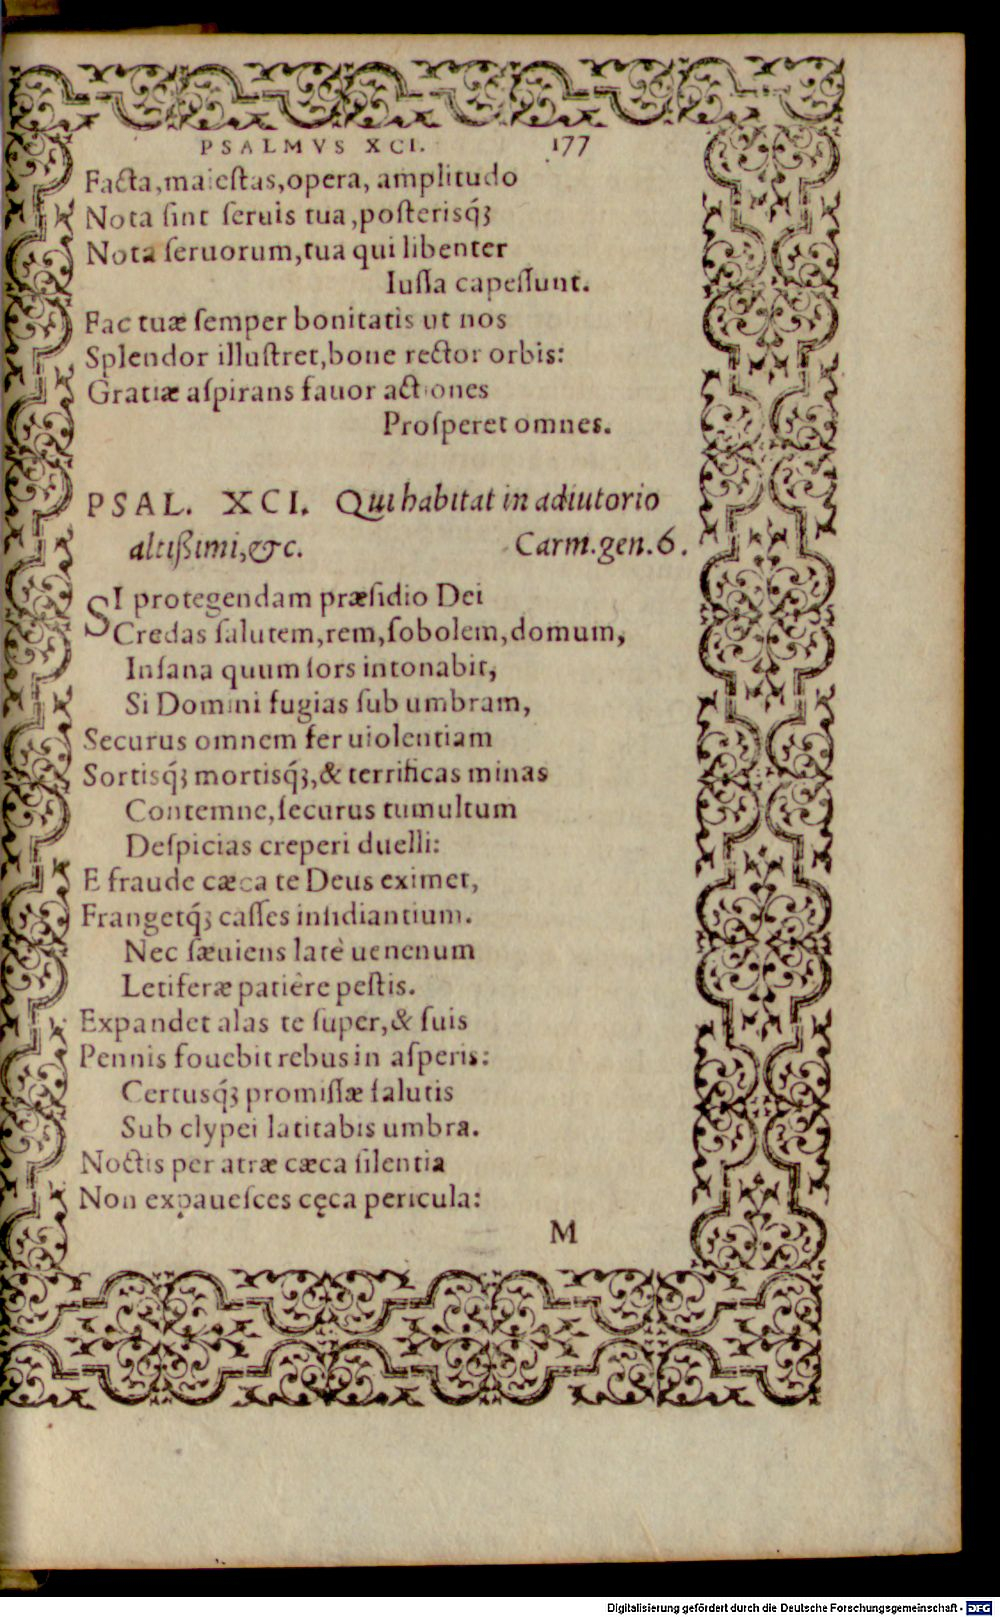 PSALMVS XCI. 177
Facta, maieſtas, opera, amplitudo
Nota ſint ſeruis tua, poſterisq́ꝫ
Nota ſeruorum, tua qui libenter
Iuſſa capeſſunt.
Fac tuæ ſemper bonitatis ut nos
Splendor illuſtret, bone rector orbis:
Gratiæ aſpirans fauor actiones
Proſperet omnes.
PSAL. XCI. Qui habitat in adiutorio
altißimi, &c. Carm. gen. 6.
SI protegendam præſidio Dei
Credas ſalutem, rem, ſobolem, domum,
Inſana quum ſors intonabit,
Si Domini fugias ſub umbram,
Securus omnem fer uiolentiam
Sortisq́ꝫ mortisq́ꝫ, & terrificas minas
Contemne, ſecurus tumultum
Deſpicias creperi duelli:
E fraude cæca te Deus eximet,
Frangetq́ꝫ caſſes inſidiantium.
Nec ſæuiens latè uenenum
Letiferæ patière peſtis.
Expandet alas te ſuper, & ſuis
Pennis fouebit rebus in aſperis:
Certusq́ꝫ promiſſæ ſalutis
Sub clypei latitabis umbra.
Noctis per atræ cæca ſilentia
Non expaueſces cęca pericula:
M
Digitalisierung gefördert durch die Deutsche Forschungsgemeinschaft - DFG